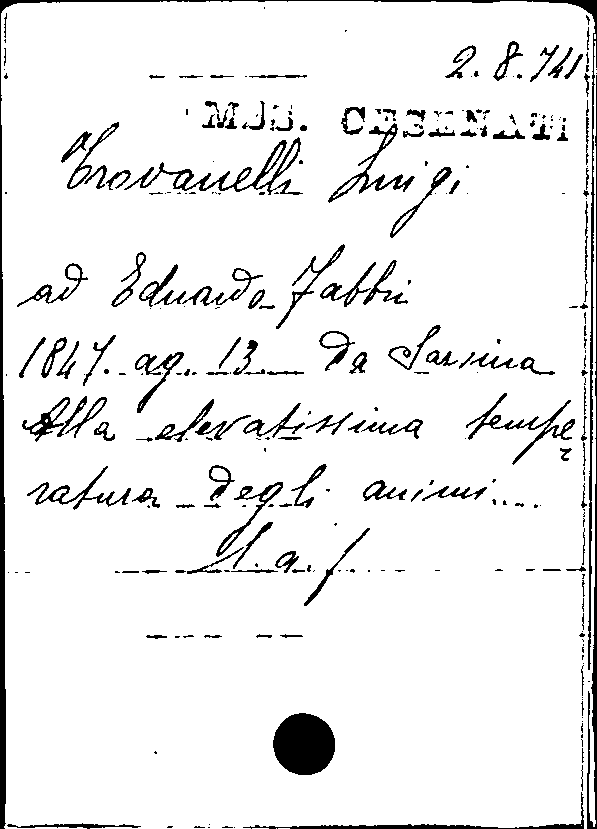 2. 8. 741
MSS. CESENATI
Trovanelli Luigi
ad Eduardo Fabbri
1847. ag. 13 da Sarsina
Alla elevatissima tempe
ratura degli animi...
L. a. f.